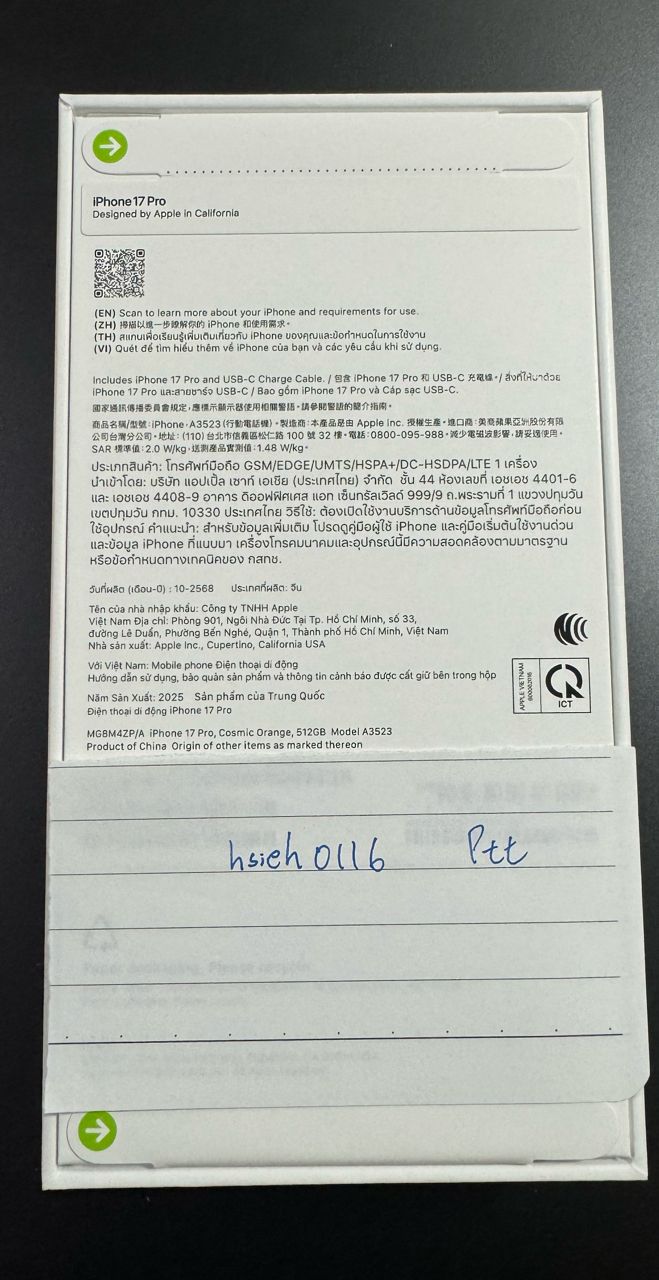 iPhone 17 Pro
Designed by Apple in California
(EN) Scan to learn more about your iPhone and requirements for use.
(ZH) 掃描以進一步瞭解你的 iPhone 和使用需求。
(TH) สแกนเพื่อเรียนรู้เพิ่มเติมเกี่ยวกับ iPhone ของคุณและข้อกำหนดในการใช้งาน
(VI) Quét để tìm hiểu thêm về iPhone của bạn và các yêu cầu khi sử dụng.
Includes iPhone 17 Pro and USB-C Charge Cable. / 包含 iPhone 17 Pro 和 USB-C 充電線。/ สิ่งที่ให้มาด้วย
iPhone 17 Pro และสายชาร์จ USB-C / Bao gồm iPhone 17 Pro và Cáp sạc USB-C.
國家通訊傳播委員會規定，應標示顯示器使用相關警語。請參閱警語的簡介指南。
商品名稱/型號：iPhone，A3523 (行動電話機)。製造商：本產品是由 Apple Inc. 授權生產。進口商：美商蘋果亞洲股份有限
公司台灣分公司。地址：(110) 台北市信義區松仁路 100 號 32 樓。電話：0800-095-988。減少電磁波影響，請妥適使用。
SAR 標準值：2.0 W/kg，送測產品實測值：1.48 W/kg。
ประเภทสินค้า: โทรศัพท์มือถือ GSM/EDGE/UMTS/HSPA+/DC-HSDPA/LTE 1 เครื่อง
นำเข้าโดย: บริษัท แอปเปิ้ล เซาท์ เอเชีย (ประเทศไทย) จำกัด ชั้น 44 ห้องเลขที่ เอชเอช 4401-6
และ เอชเอช 4408-9 อาคาร ดิออฟฟิศเศส แอท เซ็นทรัลเวิลด์ 999/9 ถ.พระรามที่ 1 แขวงปทุมวัน
เขตปทุมวัน กทม. 10330 ประเทศไทย วิธีใช้: ต้องเปิดใช้งานบริการด้านข้อมูลโทรศัพท์มือถือก่อน
ใช้อุปกรณ์ คำแนะนำ: สำหรับข้อมูลเพิ่มเติม โปรดดูคู่มือผู้ใช้ iPhone และคู่มือเริ่มต้นใช้งานด่วน
และข้อมูล iPhone ที่แนบมา เครื่องโทรคมนาคมและอุปกรณ์นี้มีความสอดคล้องตามมาตรฐาน
หรือข้อกำหนดทางเทคนิคของ กสทช.
วันที่ผลิต (เดือน-ปี) : 10-2568 ประเทศที่ผลิต: จีน
Tên của nhà nhập khẩu: Công ty TNHH Apple
Việt Nam Địa chỉ: Phòng 901, Ngôi Nhà Đức Tại Tp. Hồ Chí Minh, số 33,
đường Lê Duẩn, Phường Bến Nghé, Quận 1, Thành phố Hồ Chí Minh, Việt Nam
Nhà sản xuất: Apple Inc., Cupertino, California USA
Với Việt Nam: Mobile phone Điện thoại di động
Hướng dẫn sử dụng, bảo quản sản phẩm và thông tin cảnh báo được cất giữ bên trong hộp
APPLE VIETNAM
ICT
Năm Sản Xuất: 2025 Sản phẩm của Trung Quốc
Điện thoại di động iPhone 17 Pro
MG8M4ZP/A iPhone 17 Pro, Cosmic Orange, 512GB Model A3523
Product of China Origin of other items as marked thereon
hsieh0116 Ptt